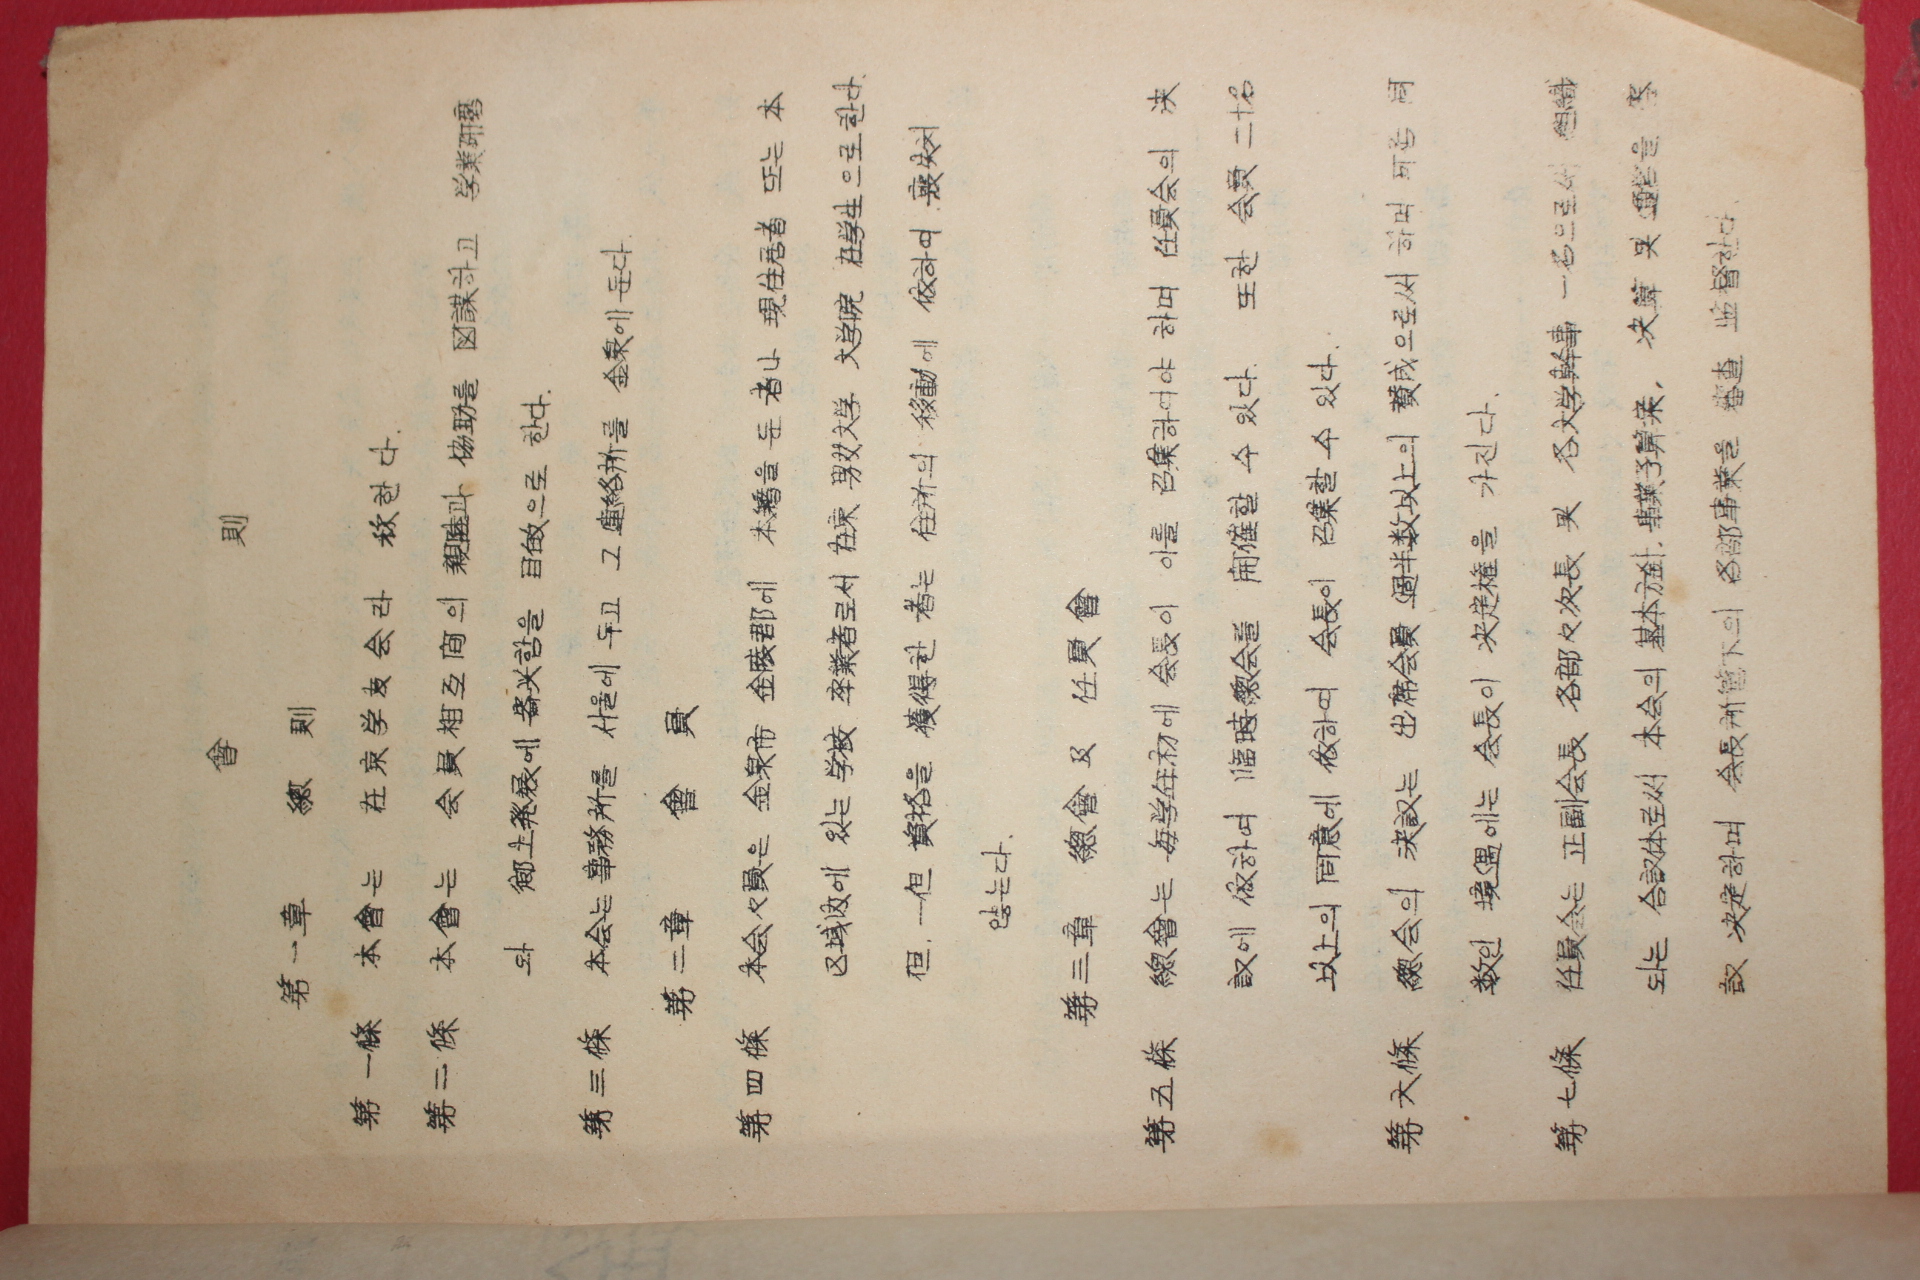 會 則
第一章 總則
第一條 本會는 在京学友会라 称한다.
第二條 本會는 会員相互间의 親睦과 協助를 図謀하고 学業研磨
와 鄕土発展에 寄与함을 目的으로 한다.
第三條 本会는 事務所를 서울에 두고 그 連絡所를 金泉에 둔다.
第二章 會員
第四條 本会々員은 金泉市 金陵郡에 本籍을 둔 者나 現住居者 또는 本
区域內에 있는 学校 卒業者로서 在京 男女大学 大学院 在学生으로 한다.
但. 一但 資格을 獲得한 者는 住所의 移動에 依하여 喪失치
않는다.
第三章 總會 及 任員會
第五條 總會는 每学年初에 会長이 이를 召集하여야 하며 任員会의 決
议에 依하여 临時總会를 開催할 수 있다. 또한 会員 二十名
以上의 同意에 依하여 会長이 召集할 수 있다.
第六條 總会의 決议는 出席会員 過半数以上의 賛成으로써 하며 可否 同
数인 境遇에는 会長이 決定權을 가진다.
第七條 任員会는 正副会長 各部々次長 및 各大学幹事 一名으로서 組織
되는 合议体로써 本会의 基本方針. 事業予算案. 決算 및 을
议 決定하며 会長所管下의 各部事業을 審査 监督한다.